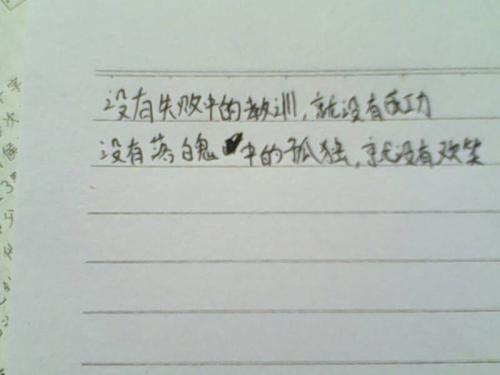 没有失败中的教训,就没有成功
没有落白鬼中的孤独,就没有欢笑